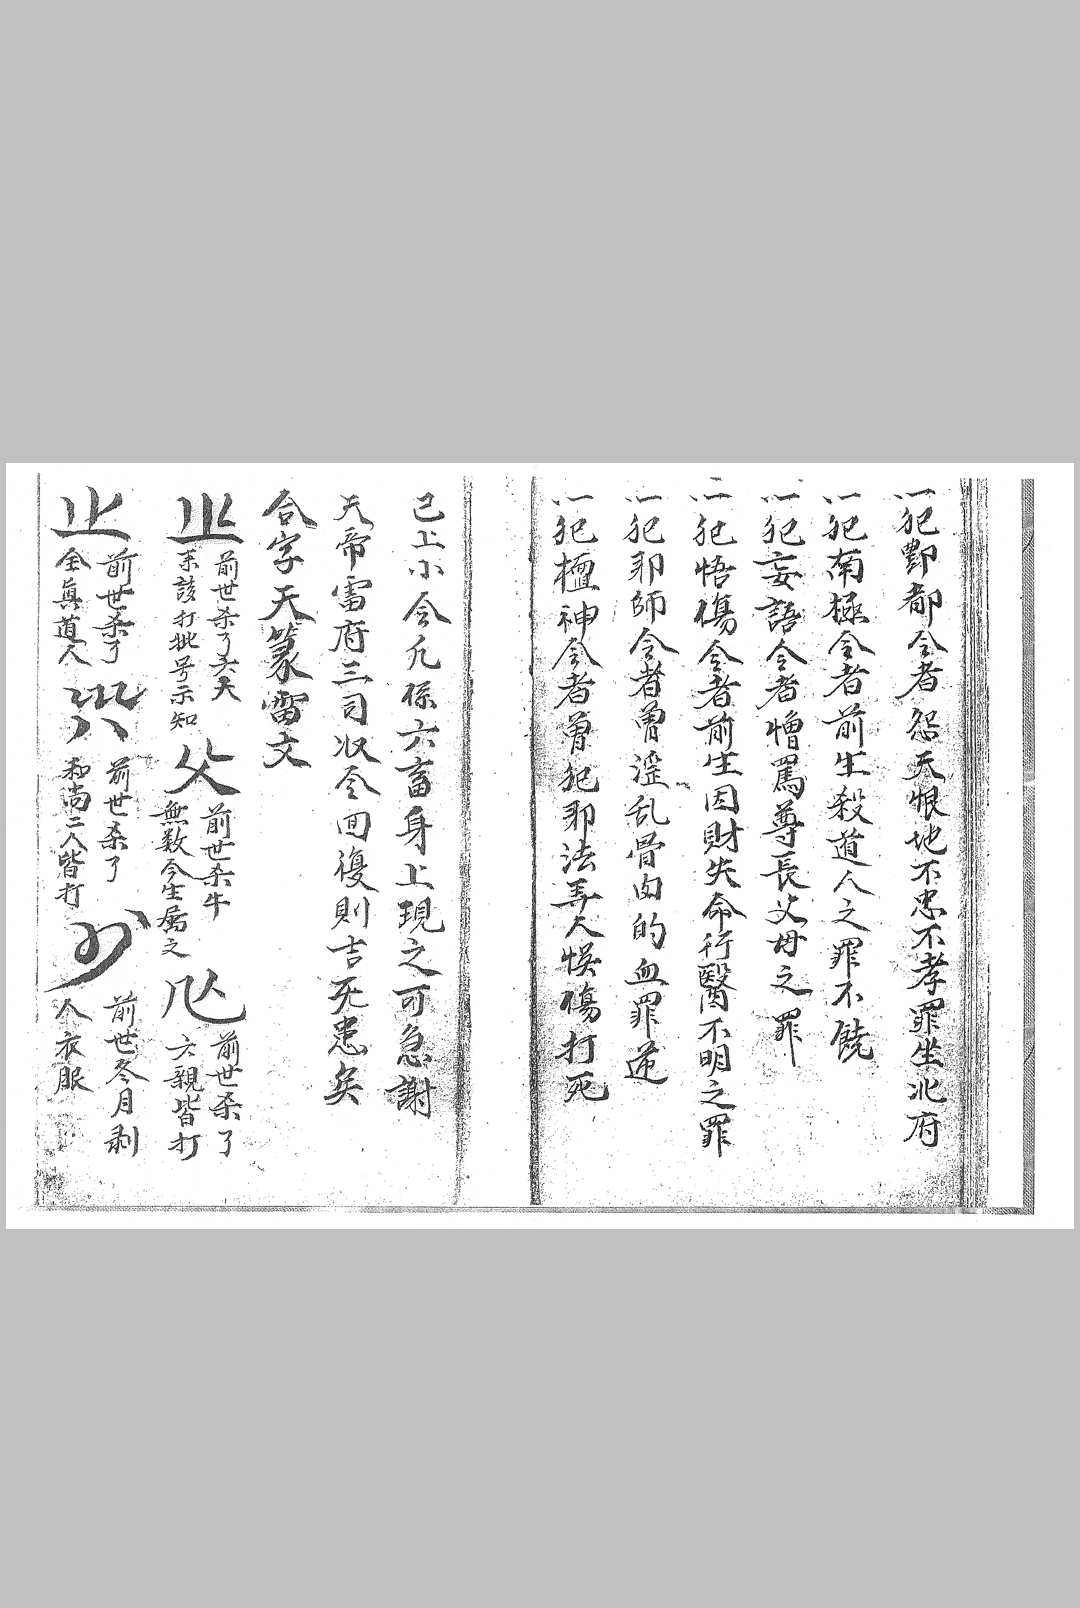 一犯酆都令者怨天恨地不忠不孝罪坐北府
一犯南極令者前生殺道人之罪不饒
一犯妄語令者憎罵尊長父母之罪
一犯悟傷令者前生因財失命行醫不明之罪
一犯邪師令者曽淫乱骨肉的血罪逆
一犯檀神令者曽犯邪法弄人悮傷打死
已上小令凢係六畜身上現之可急謝
天帝雷府三司収令囬復則吉死患矣
合字天篆雷文
前世杀了六天
未該打批号示知
前世杀牛
無数今生属之
前世杀了
六親皆打
前世杀了
全真道人
前世杀了
和尚二人皆打
前世冬月剥
人衣服